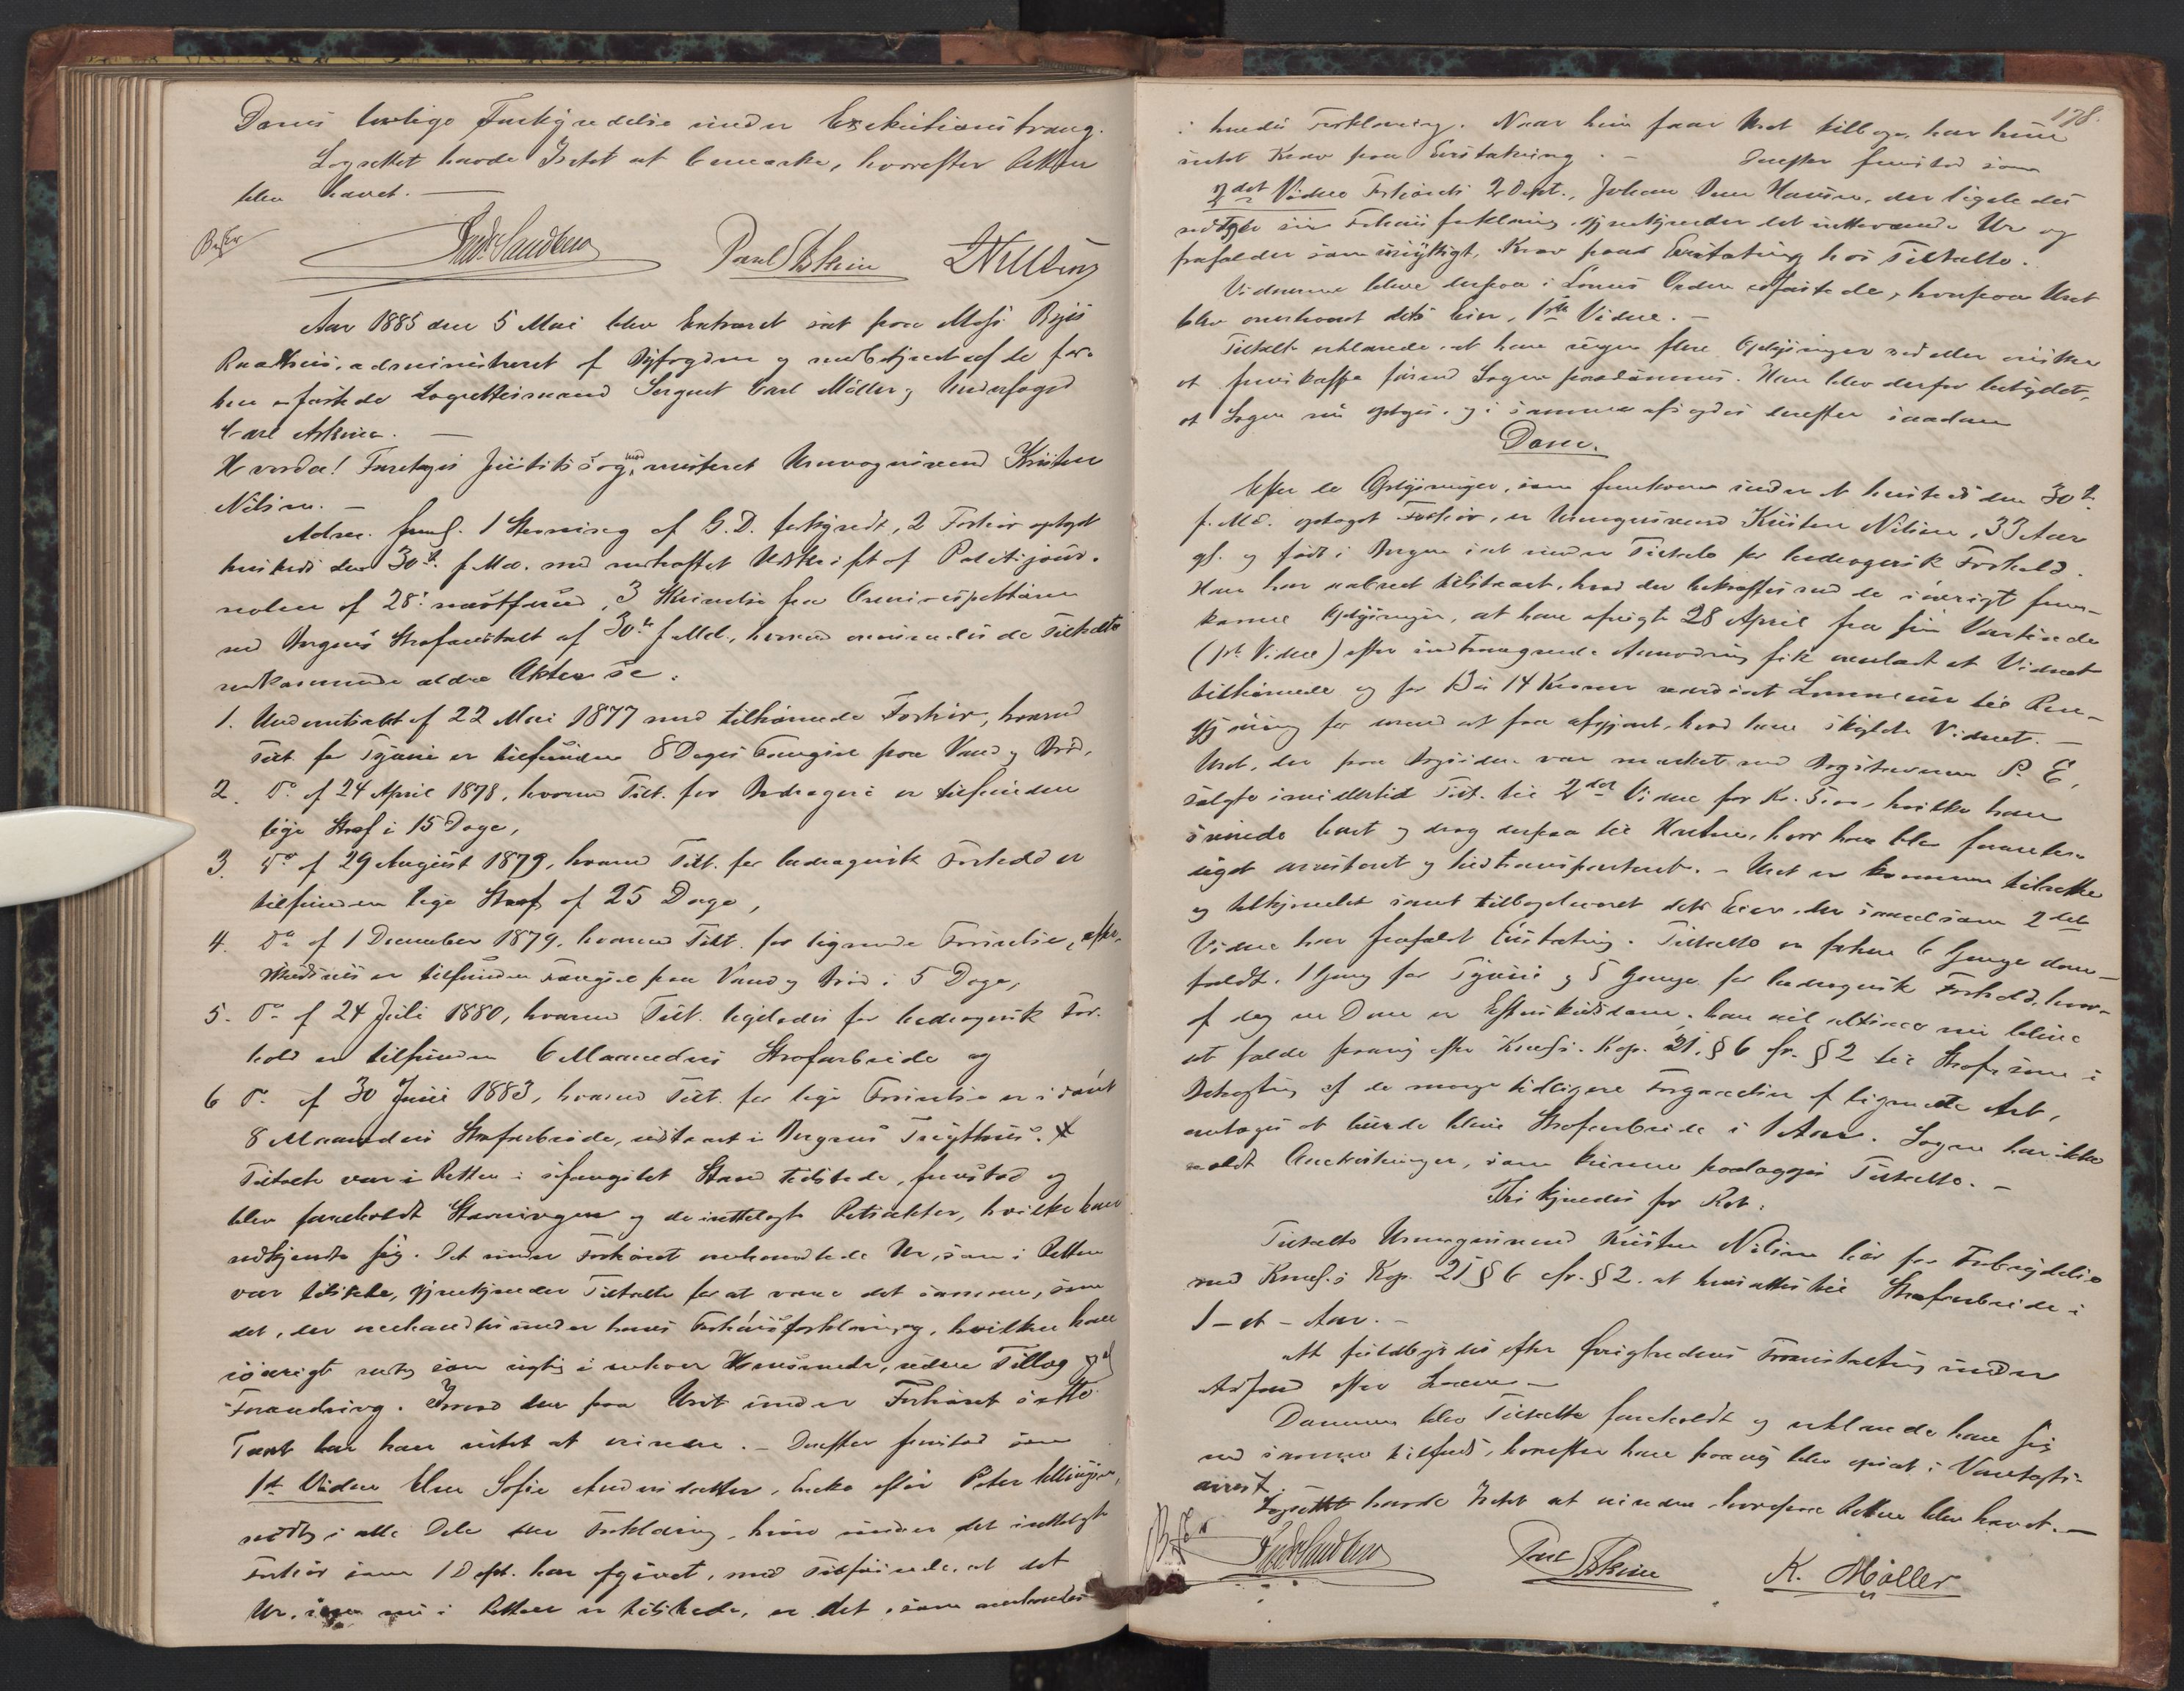 Doms lovlige Forkyndelse under Exekutionstvang.
Lagrettet havde Intet at bemærke, hvorefter Retten
blev hævet. —
Fredr. Sandberg Paul Askim
Aar 1885 den 5 Mai blev Extraret sat paa Bergs Byes
Raadhuus, administreret af Byfogden og medbetjent af de for-
hen edfæstede Lagrettesmænd Sergent Carl Möller og Underfoged
Carl Askim. —
Hvorda! Foretoges Justitssag mod arresteret Urmagersvend Kristen
Nilsen. —
Adm. freml. 1 Stevning af G. D. forkyndt, 2 Forhør optaget
hersteds den 30te f. Md. med vedhæftet Udskrift af Politijour-
nalen af 28de næstforrud, 3 Skrivelse fra Overinspektionen
ved Bergens Strafanstalt af 30te f. Md., hvorved oversendes de Tiltalte
vedkommende ældre Akter se.
1. Underretsakt af 22 Mai 1877 med tilhørende Forhør, hvorved
Tilt. for Tyveri er tilfunden 8 Dages Fængsel paa Vand og Brød,
2. Do af 24 April 1878, hvorved Tilt. for Bedrageri er tilfunden
lige Straf i 15 Dage,
3. Do af 29 August 1879, hvorved Tilt. for bedragersk Forhold er
tilfunden lige Straf af 25 Dage,
4. Do af 1 December 1879, hvorved Tilt. for lignende Forseelse, efter-
skudsviis er tilfunden Fængsel paa Vand og Brød i 5 Dage,
5. Do af 24 Juli 1880, hvorved Tilt. ligeledes for bedragersk For-
hold er tilfunden 6 Maaneders Strafarbeide og
6 Do af 30 Juni 1883, hvorved Tilt. for lige Forseelse er idømt
8 Maaneders Strafarbeide, udstaaet i Bergens Tugthus.
Tiltalte var i Retten i ufængslet Stand tilstede, fremstod og
blev foreholdt Stævningen og de irettelagte Retsakter, hvilke han
vedkjendte sig. Det under Forhøret omhandlede Ur, som i Retten
var tilstede, gjenkjender Tiltalte for at være det samme, som
det, der omhandles under hans Forhørsforklaring, hvilken han
iøvrigt vedtog som rigtig i enhver Henseende, uden Tillæg og
Forandring. Imod den paa Uret under Forhøret satte
Taxt har han intet at erindre. – Derefter fremstod som
1ste Vidne Elen Sofie Andersdatter, Enke efter Peter Ellingsen,
vedtog i alle Dele den Forklaring, hun under det irettelagte
Forhør som 1 Dept. har afgivet, med Tilføiende, at det
Ur, som nu i Retten er tilstede, er det, som omhandles
178.
i hendes Forklaring. Naar hun faar Uret tilbage, har hun
intet Krav paa Erstatning. — Derefter fremstod som
2det Vidne Forhørets 2 Dept., Johan Hansen, der ligeledes
vedtog sin Forhørsforklaring, gjenkjender det iretteværende Ur og
frafalder som unyttigt, Krav paa Erstatning hos Tiltalte.
Vidnerne bleve derpaa i Lovens Orden edfæstede, hvorpaa Uret
blev overleveret dets Eier, 1ste Vidne. –
Tiltalte erklærede, at han ingen flere Oplysninger ved eller ønsker
at fremskaffe førend Sagen paadømmes. Han blev derfor betydet,
at Sagen nu optages, og i samme afsagdes derefter saadan
Dom.
Efter de Oplysninger, som fremkom under et herstedes den 30te
f. Md. optaget Forhør, er Urmagersvend Kristen Nilsen, 33 Aar
gl. og født i Bergen sat under Tiltale for bedragersk Forhold.
Han har nemlig tilstaaet, hvad der bekræftes ved de iøvrigt frem-
komne Oplysninger, at han afvigte 28 April fra sin Værtinde
(1ste Vidne) efter indtrængende Anmodning fik overladt et Vidnet
tilhørende og for 13 à 14 Kroner værd sat Lommeur til Ren-
gjøring for med at faa afgjort, hvad han skyldte Vidnet. —
Uret, der paa Bagsiden var mærket med Bogstaverne P. E,
solgte imidlertid Tilt. til 2det Vidne for Kr. 5.00, hvilke han
svirede bort og drog derpaa til , hvor han blev
arresteret og hidtransporteret. – Uret er kommen tilrette
og tilkjendet samt tilbageleveret dets Eier, der saavelsom 2det
Vidne har frafaldt Erstatning. Tiltalte er forhen 6 Gange dom-
fældt, 1 Gang for Tyveri og 5 Gange for bedragersk Forhold, hvor-
af dog en Dom er Efterskudsdom; han vil altsaa nu blive
at fælde paany efter Kriml. Kap. 21, § 6 cfr. § 2 til Straf, som i
Betragtning af de mange tidligere Forgaaelser af lignende Art,
antages at burde blive Strafarbeide i 1 Aar. Sagen har ikke
voldt Omkostninger, som kunne paalægges Tiltalte. –
Thi kjendes for Ret:
Tiltalte Urmagersvend Kristen Nilsen bør for Forbrydelse
mod Kriml.s Kap. 21 § 6 cfr. § 2. at hensættes til Strafarbeide i
1 – et – Aar. –
At fuldbyrdes efter Øvrighedens Foranstaltning under
Adfærd efter Loven –
Dommen blev Tiltalte foreholdt og erklærede han sig
med samme tilfreds, hvorefter han paany blev afsat i Varetægts-
arrest.
Lagrettet havde Intet at erindre, hvorpaa Retten blev hævet. —
Fredr. Sandberg Paul Askim K. Møller